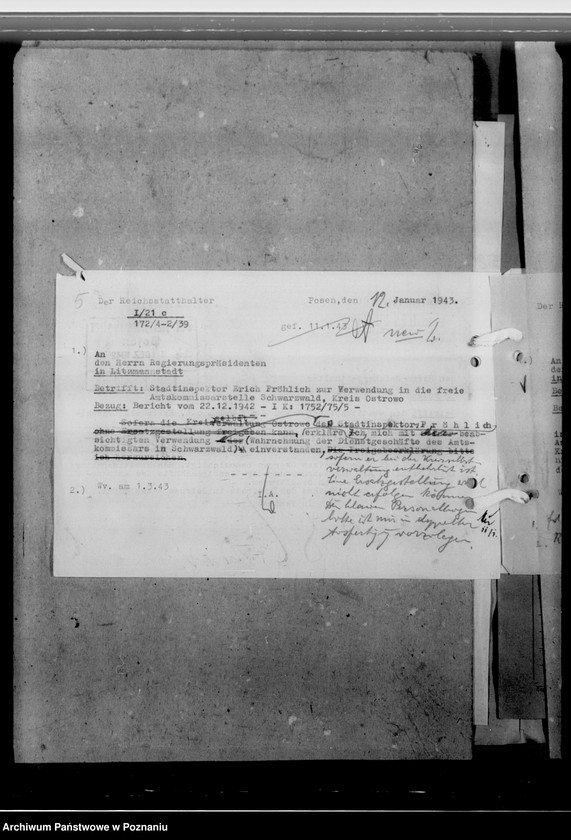 5
Der Reichsstatthalter
Posen, den 12. Januar 1943.
I/21 c
172/4-2/39
gef. 11.1.43
neu
1.) An
den Herrn Regierungspräsidenten
in Litzmannstadt
Betrifft: Stadtinspektor Erich Fröhlich zur Verwendung in die freie
Amtskommissarstelle Schwarzwald, Kreis Ostrowo
Bezug: Bericht vom 22.12.1942 - I K: 1752/75/5 -
Sofern die Kreisverwaltung Ostrowo den Stadtinspektor Fröhlich
ohne Ersatzgestellung freigeben kann, erkläre ich mich mit der beab-
sichtigten Verwendung (Wahrnehmung der Dienstgeschäfte des Amts-
kommissars in Schwarzwald) einverstanden. Die Freigabeerklärung bitte
ich
sofern er bei der Kreisselbst-
verwaltung entbehrlich ist.
Eine Ersatzgestellung wird
nicht erfolgen können.
Den blauen Personalbogen
bitte ich mir in doppelter
Ausfertigung vorzulegen.
2.) Wv. am 1.3.43
I.A.
Der
An
de
in
Be
Be
Archiwum Państwowe w Poznaniu